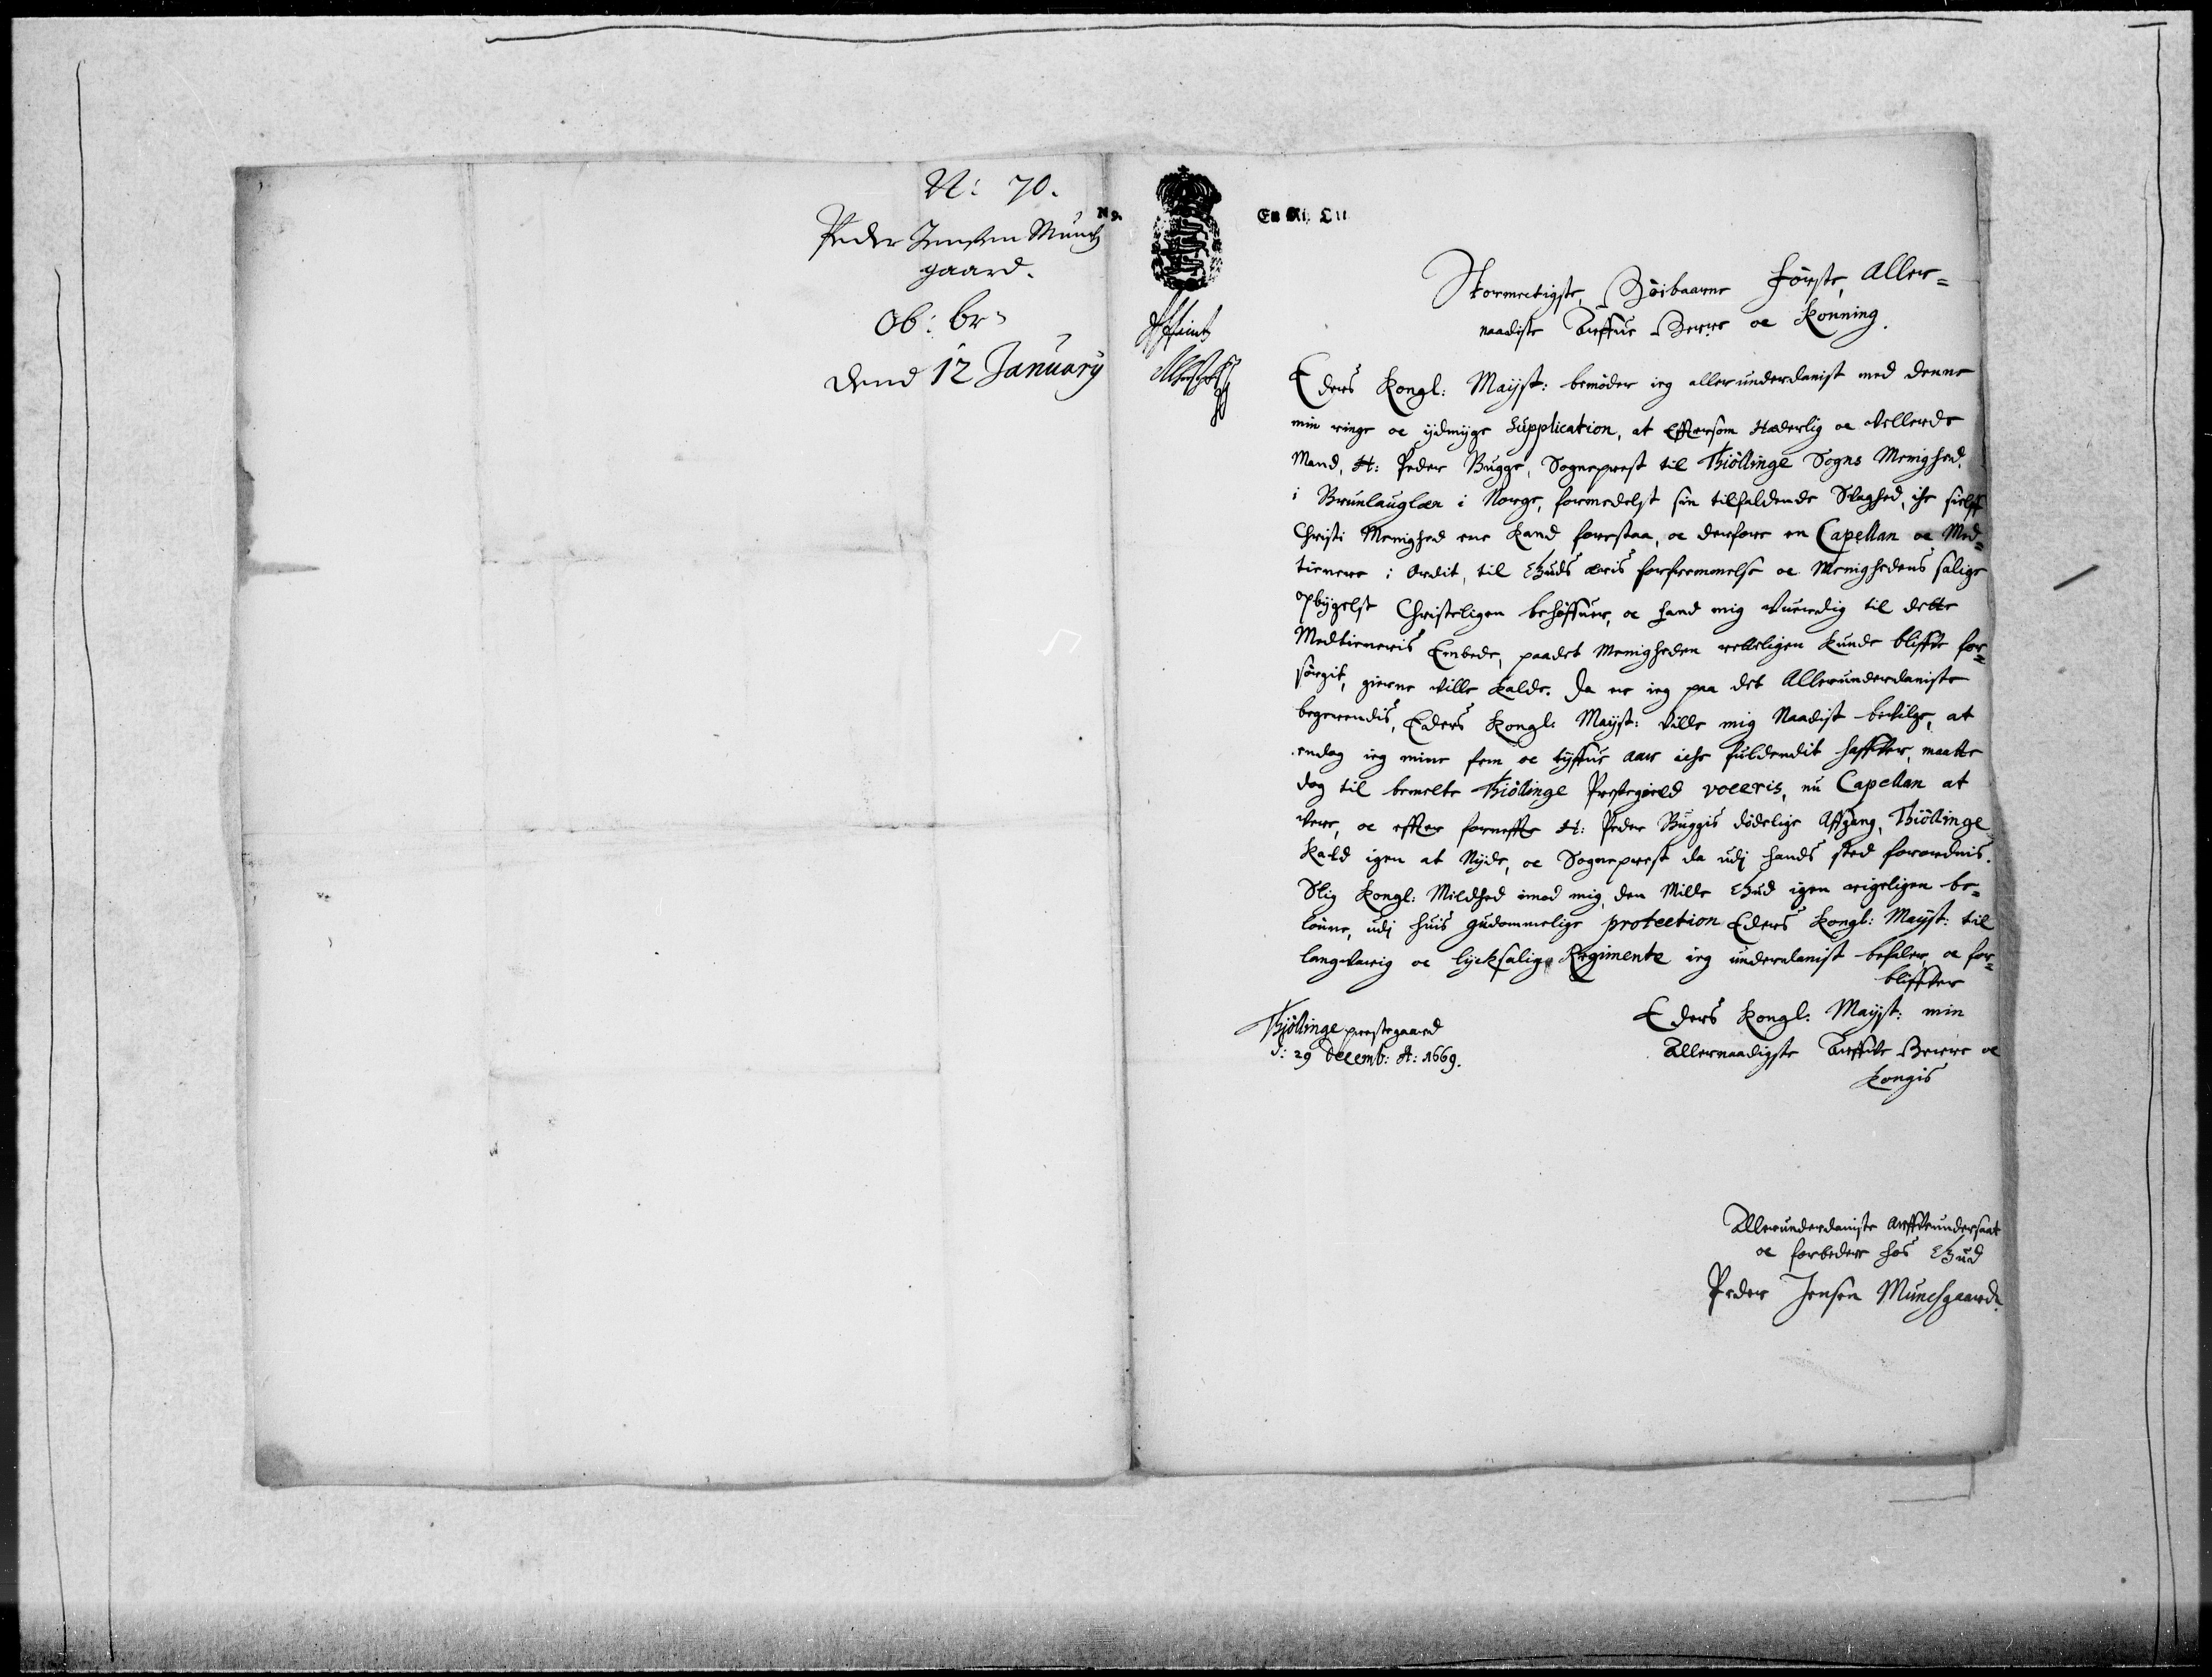 N: 70.
Peder Jensen Munch
gaard.
Ob: br:
dend 12 January
N 9.
En Ri.
Stormectigste, Höibaarne Förste, Aller=
naadiste Arffue Herre oc Konning.
Eders Kongl: Mayst: bemöder ieg allerunderdanist med denne
min ringe oc ydmyge Supplication, at Effterson Hæderlig oc Vellerde
Mand, H: Peder Bugge, Sogneprest til Thiöllinge Sogns Menighed,
i Brunlauglæn i Norge, formedelst sin tilfaldende Svaghed, iche sielff
Christi Menighed ene kand forestaa, oc derfore en Capellan oc Med=
tienere i Ordit, til Guds æris forfremmelse oc Menighedens salige
opbygelse Christeligen behöffuer, oc hand mig Vuerdig til dette
Medtieneris Embede, paadet Menigheden retteligen kunde bliffve for=
sörgit, gierne ville kalde. Da er ieg paa det Allerunderdaniste
begerendis, Eders Kongl: Mayst: ville mig Naadist bevilge, at
endog ieg mine fem oc tyffue aar iche fuldendit haffver, maatte
dog til bemelte Thiöllinge Prestegield voceris, nu Capellan at
vere, oc effter forneffte H: Peder Buggis dödelige Affgang, Thiöllinge
Kald igen at Nyde, oc Sogneprest da udj hands sted forordnis.
Slig Kongl: Mildhed imod mig, den Milde Gud igen rigeligen be=
lönne, udj huis gudommelige protection Eders Kongl: Mayst: til
langvarig oc lycksalige Regimente ieg underdanist befaler, oc for=
bliffver
Thjöllinge prestegaard
d: 29 Decemb: A: 1669.
Eders Kongl: Mayst: min
Allernaadigste Arffve Herre oc
Kongis
Allerunderdaniste Arffveundersaat
oc forbedere hos Gud
Peder Jensen Munchgaard.